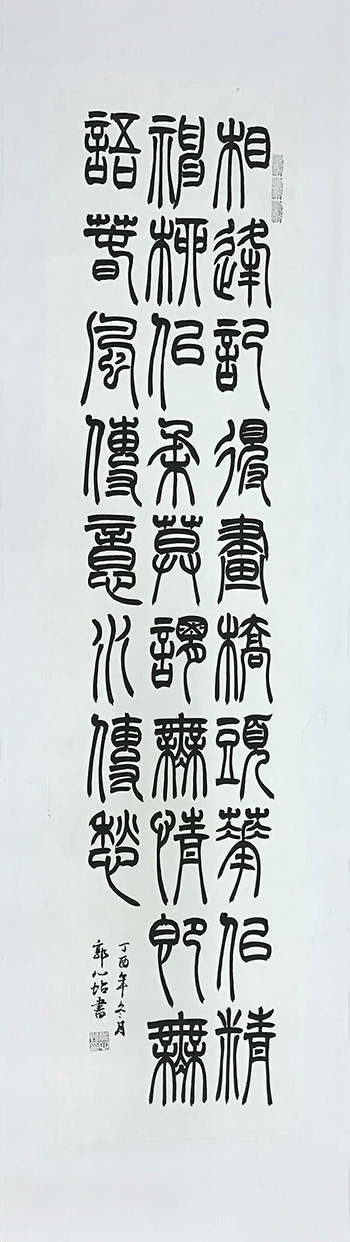 相逢記得畫橋頭華似精
神柳似柔莫謂無情即無
語春風傳意水傳愁
丁酉年冬月
郭心書